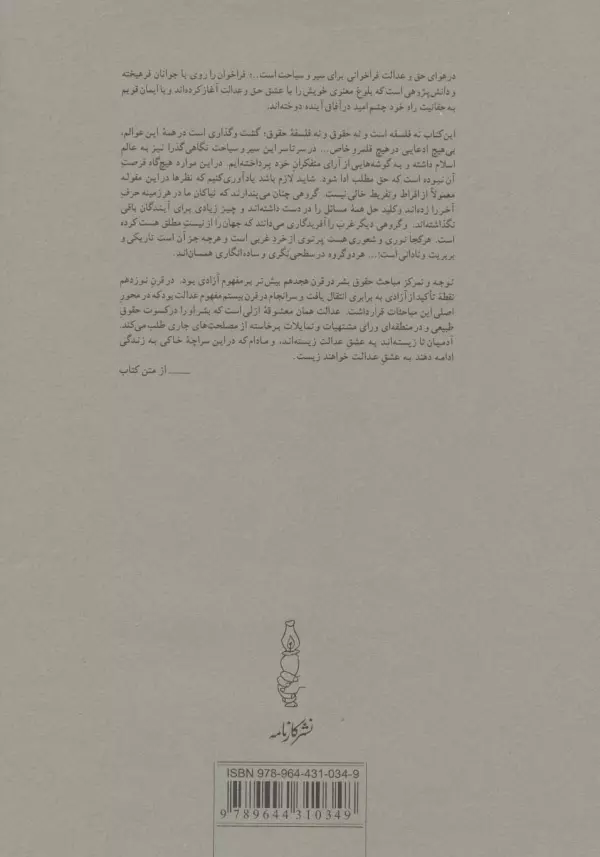 در هوای حق و عدالت فراخوانی برای سیر و سیاحت است...؛ فراخوان را روی با جوانان فرهیخته
و دانش‌پژوهی است که بلوغ معنوی خویش را با عشق حق و عدالت آغاز کرده‌اند و با ایمان قویم
به حقانیت راه خود چشم امید در آفاق آینده دوخته‌اند.
این کتاب نه فلسفه است و نه حقوق و نه فلسفهٔ حقوق؛ گشت وگذاری است در همهٔ این عوالم،
بی‌هیچ ادعایی در هیچ قلمرو خاص... در سرتاسر این سیر و سیاحت نگاهی گذرا نیز به عالم
اسلام داشته و به گوشه‌هایی از آرای متفکران خود پرداخته‌ایم. در این موارد هیچ‌گاه فرصت
آن نبوده است که حق مطلب ادا شود. شاید لازم باشد یادآوری کنیم که نظرها در این مقوله
معمولاً از افراط و تفریط خالی نیست. گروهی چنان می‌پندارند که نیاکان ما در هر زمینه حرف
آخر را زده‌اند و کلید حل همهٔ مسائل را در دست داشته‌اند و چیز زیادی برای آیندگان باقی
نگذاشته‌اند. و گروهی دیگر غرب را آفریدگاری می‌دانند که جهان را از نیستِ مطلق هست کرده
است. هر کجا نوری و شعوری هست پرتوی از خرد غربی است و هرچه جز آن است تاریکی و
بربریت و نادانی است؛... هر دو گروه در سطحی‌نگری و ساده‌انگاری همسان‌اند.
توجه و تمرکز مباحث حقوق بشر در قرن هجدهم بیش‌تر بر مفهوم آزادی بود. در قرن نوزدهم
نقطهٔ تأکید از آزادی به برابری انتقال یافت و سرانجام در قرن بیستم مفهوم عدالت بود که در محور
اصلی این مباحثات قرار داشت. عدالت همان معشوقهٔ ازلی است که بشر او را در کسوت حقوق
طبیعی و در منطقه‌ای ورای مشتهیات و تمایلات برخاسته از مصلحت‌های جاری طلب می‌کند.
آدمیان تا زیسته‌اند به عشق عدالت زیسته‌اند، و مادام که در این سراچهٔ خاکی به زندگی
ادامه دهند به عشق عدالت خواهند زیست.
ـــــــ از متن کتاب
نشر کارنامه
ISBN 978-964-431-034-9
9 789644 310349